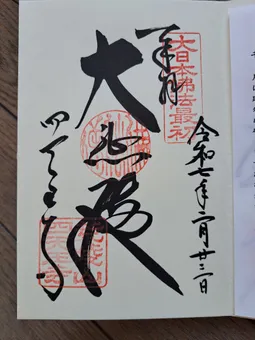 令和七年二月廿三日
大日本佛法最初
奉拝
大悲殿
四天王寺